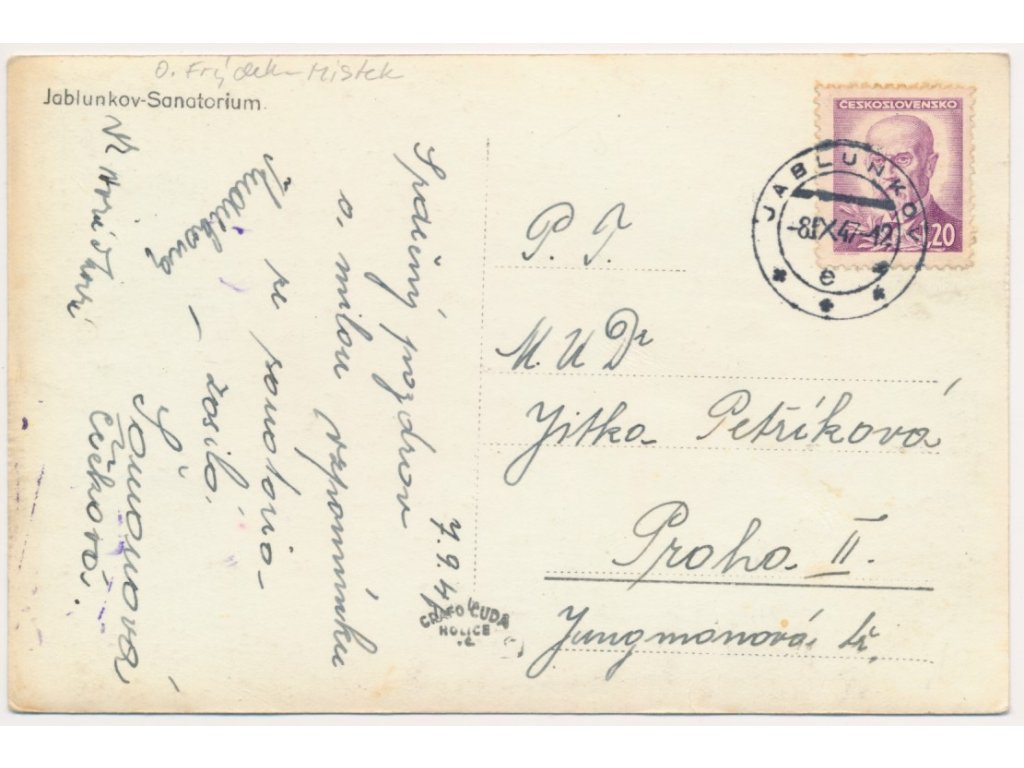 O. Frýdek-Místek
Jablunkov-Sanatorium.
ČESKOSLOVENSKO
1,20
JABLUNKOV
-8.IX.47-12
e
7.9.47
Srdečný pozdrav
a milou vzpomínku
ze sanatoria
– zasílá
Čížková.
P. T.
M. U Dr
Jitka Petříková
Praha II.
Jungmanová tř.
GRAFO ČUDA
HOLICE